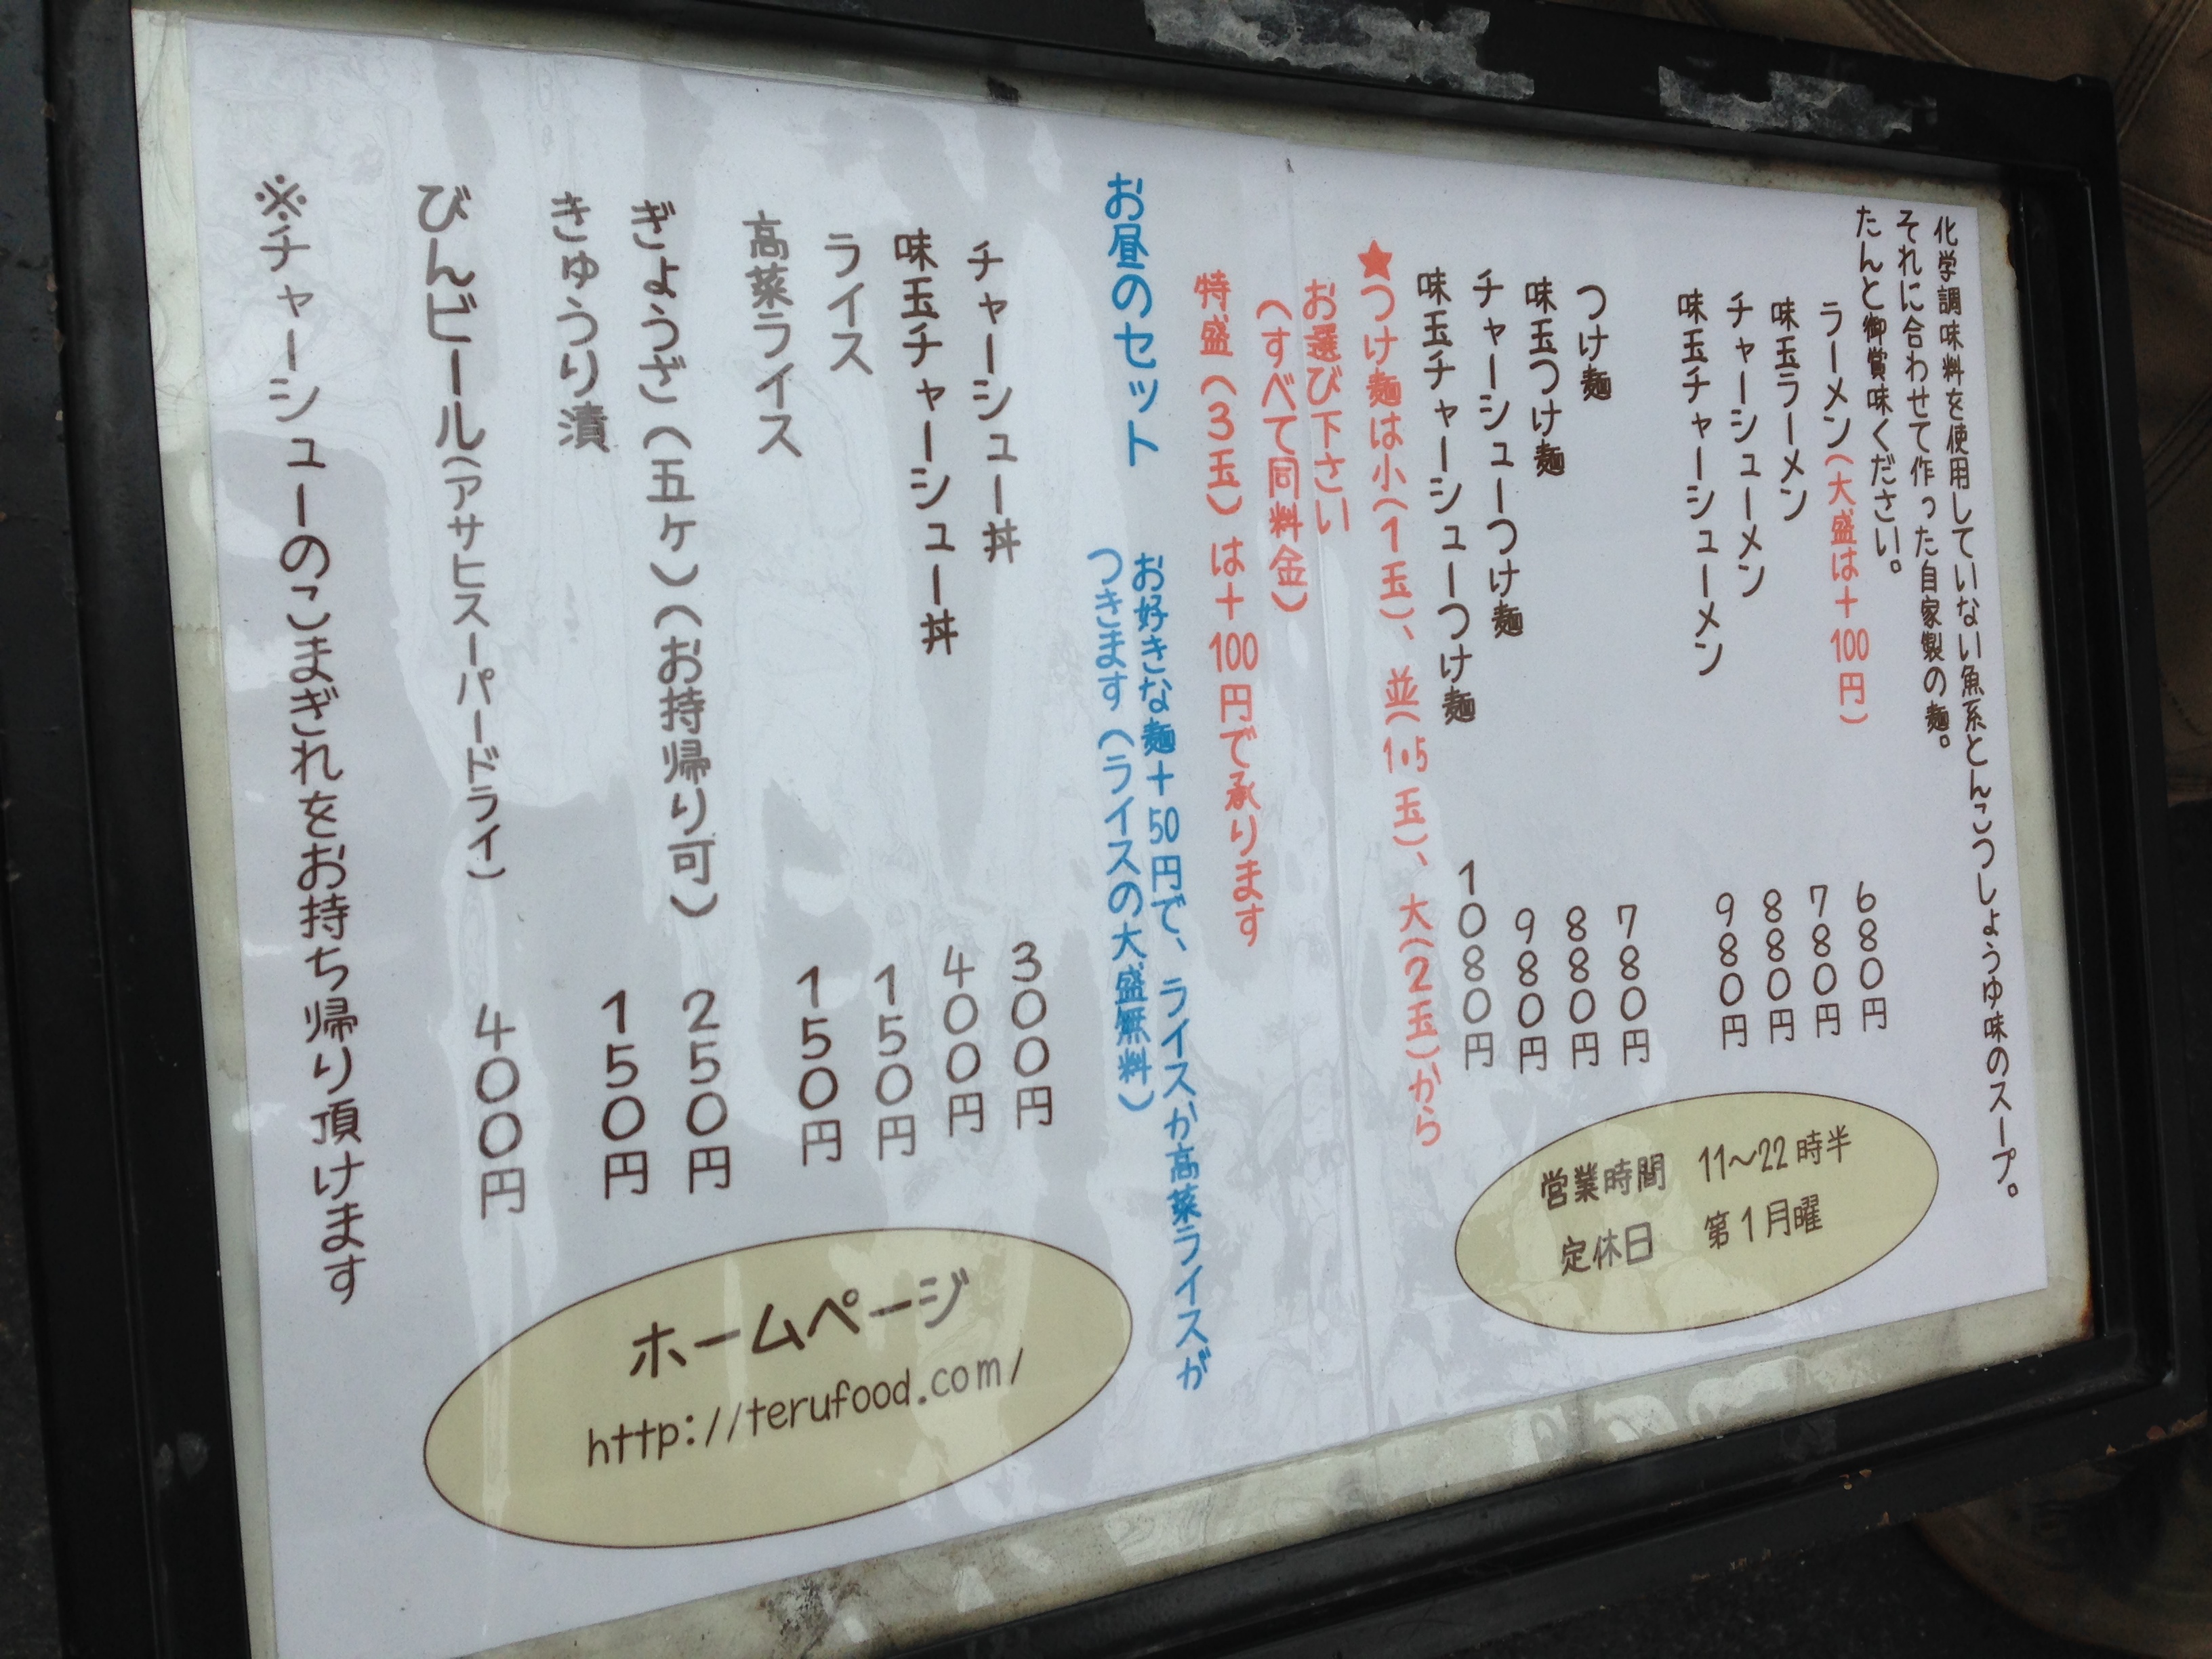 化学調味料を使用していない魚系とんこつしょうゆ味のスープ。
それに合わせて作った自家製の麺。
たんと御賞味ください。
ラーメン(大盛は+100円) 680円
味玉ラーメン 780円
チャーシューメン 880円
味玉チャーシューメン 980円
つけ麺 780円
味玉つけ麺 880円
チャーシューつけ麺 980円
味玉チャーシューつけ麺 1080円
★つけ麺は小(1玉)、並(1・5玉)、大(2玉)から
お選び下さい
(すべて同料金)
特盛(3玉)は+100円で承ります
お昼のセット
お好きな麺+50円で、ライスか高菜ライスが
つきます(ライスの大盛無料)
チャーシュー丼 300円
味玉チャーシュー丼 400円
ライス 150円
高菜ライス 150円
ぎょうざ(五ヶ)(お持帰り可) 250円
きゅうり漬 150円
びんビール(アサヒスーパードライ) 400円
※チャーシューのこまぎれをお持ち帰り頂けます
営業時間 11〜22時半
定休日 第1月曜
ホームページ
http://terufood.com/